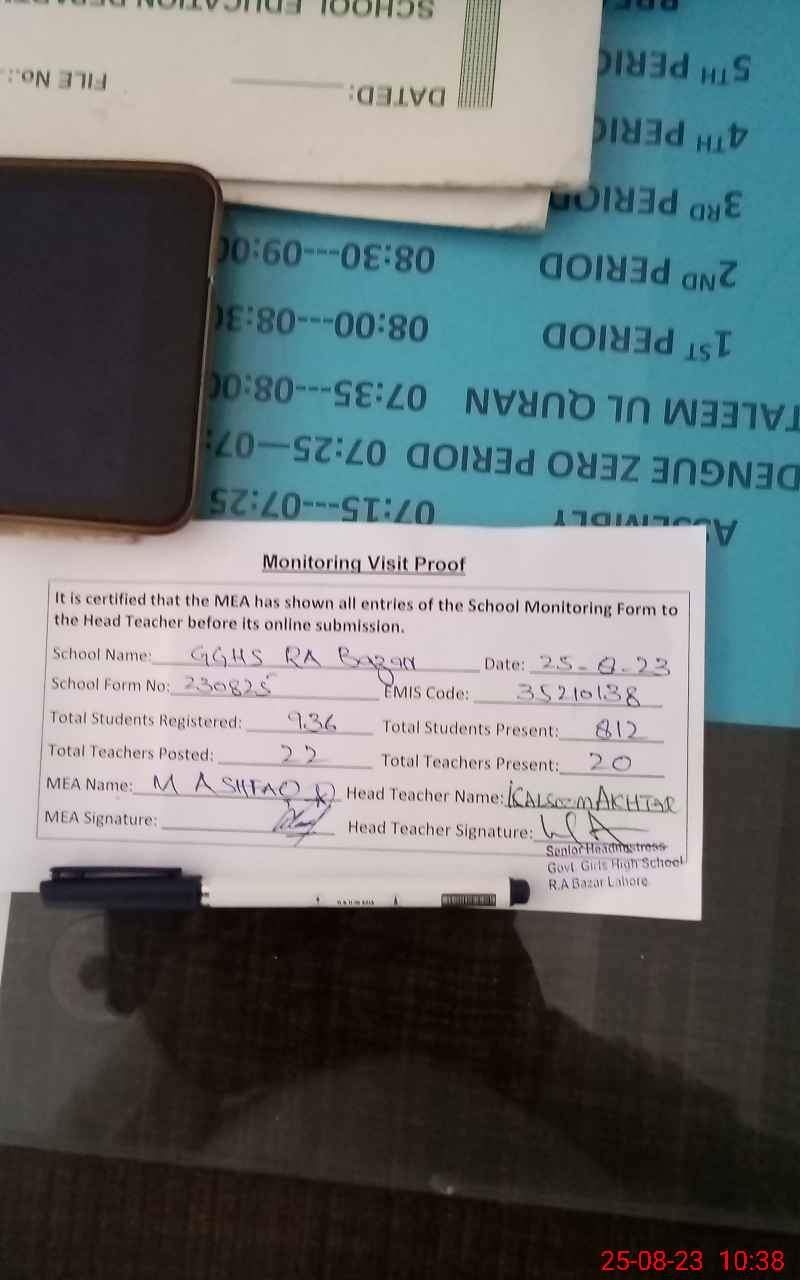 SCHOOL EDUCATION
DATED:
FILE No.:
5TH
4TH
3RD PERIOD
2ND PERIOD 08:30---09:00
1ST PERIOD 08:00---08:30
TALEEM UL QURAN 07:35---08:00
DENGUE ZERO PERIOD 07:25—07:
ASSEMBLY 07:15---07:25
Monitoring Visit Proof
It is certified that the MEA has shown all entries of the School Monitoring Form to
the Head Teacher before its online submission.
School Name: GGHS RA Bazar Date: 25-8-23
School Form No: 230825 EMIS Code: 35210138
Total Students Registered: 936 Total Students Present: 812
Total Teachers Posted: 22 Total Teachers Present: 20
MEA Name: M ASHFAQ Head Teacher Name: KALSOOM AKHTAR
MEA Signature: Head Teacher Signature:
Senior Headmistress
Govt. Girls High School
R.A Bazar Lahore
25-08-23 10:38